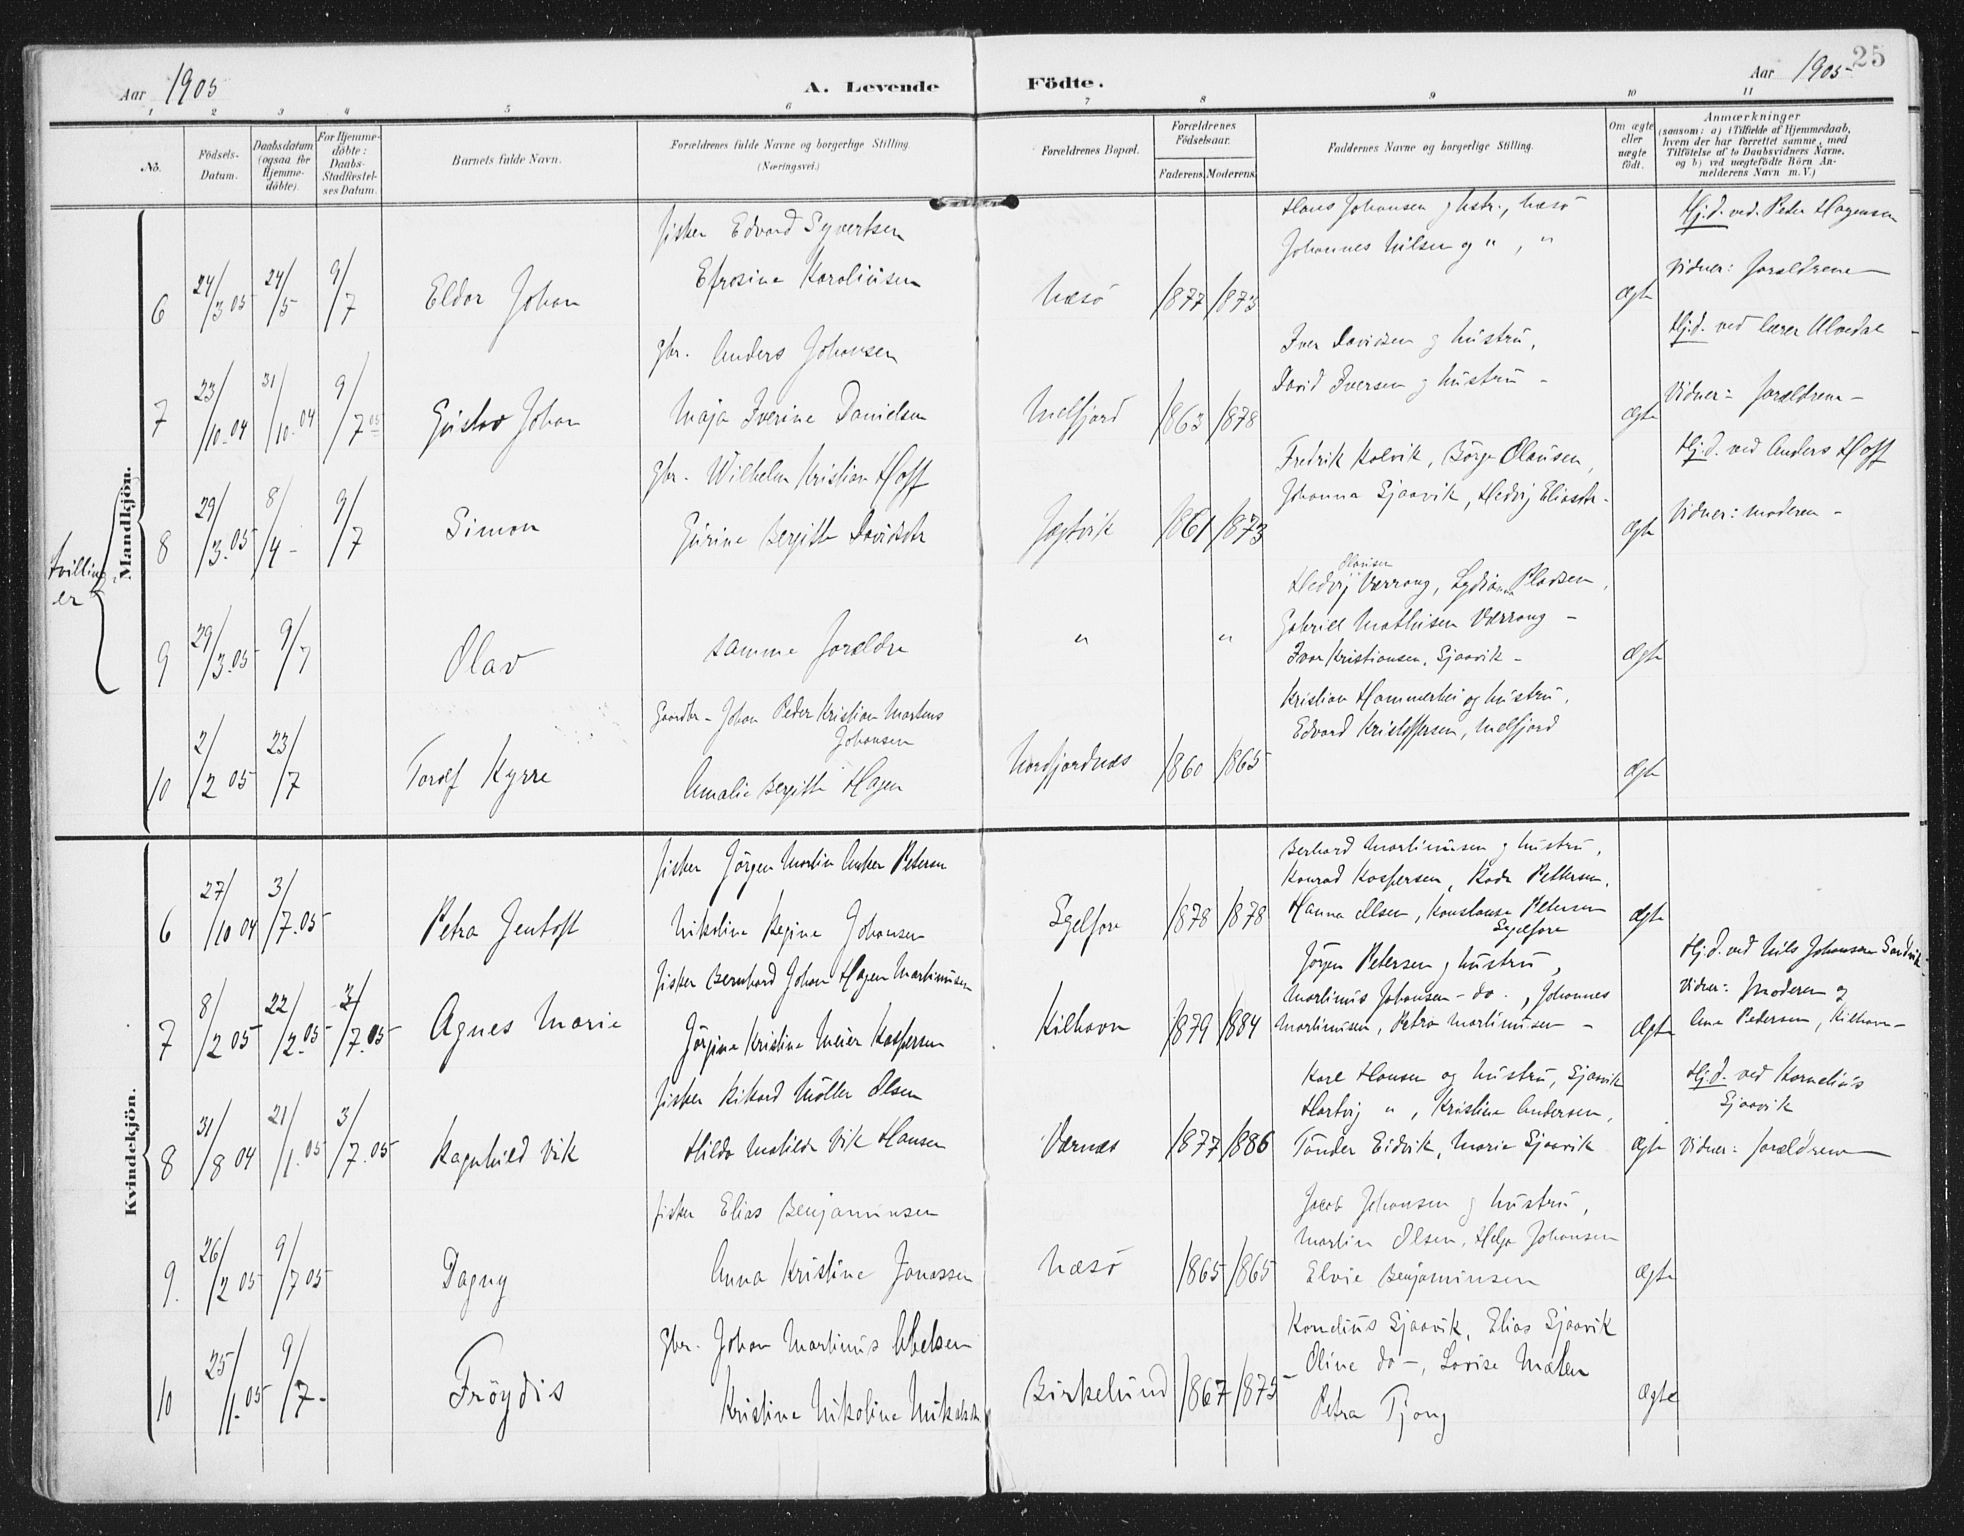 25
Aar 1905
A. Levende Födte.
Aar 1905
1 2 3 4 5 6 7 8 9 10 11
No.
Födsels-Datum.
Daabsdatum (ogsaa for Hjemmedöbte).
For Hjemmedöbte: Daabs-Stadfæstelses Datum.
Barnets fulde Navn.
Forældrenes fulde Navne og borgerlige Stilling. (Næringsvei.)
Forældrenes Bopæl.
Forældrenes Födselsaar.
Faderens. Moderens.
Faddernes Navne og borgerlige Stilling.
Om ægte eller uægte födt.
Anmærkninger
(saasom: a) i Tilfælde af Hjemmedaab, hvem der har forrettet samme, med Tilföielse af to Daabsvidners Navne, og b) ved uægtefödte Börn Anmelderens Navn m. V.)
Mandkjön.
tvillinger
6 24/3 05 24/5 9/7 Eldor Johan
fisker Edvard Syvertsen
Efrosine Karoliusen
Næsö 1877 1873
Hans Johansen g hstr., Næsö
Johannes Nilsen og " , "
ægte
Hj.d. ved Peder Hagensen
Vidner: forældrene
7 23/10-04 31/10-04 9/7 05 Gustav Johan
gbr. Anders Johansen
Maja Iverine Danielsen
Melfjord 1863 1878
Iver Davidsen g hustru,
David Iversen g hustru -
ægte
Hj.d. ved lærer Alvedal
Vidner: forældrene -
8 29/3.05 8/4 - 9/7 Simon
gbr. Wilhelm Kristian Hoff
Gurine Bergitte Davidsdtr
Jegtvik 1861 1873
Fredrik Kolvik, Börge Olausen,
Johanna Sjaavik, Hedvig Eliasdtr -
ægte
Hj.d. ved Anders Hoff
Vidner: moderen -
9 29/3.05 9/7 Olav
samme forældre
" "
Olausen
Hedvig Værrang, Lydianna
Gabriel Mathisen Værrang -
Ivar Kristiansen, Sjaavik -
ægte
10 2/2 05 23/7 Torolf Kyrre
Gaardbr - Johan Peder Kristian Martens
Johansen
Amalie Bergitte Hagen
Nordfjordnæs 1860 1865
Kristian Hammerhei og hustru,
Edvard Kristoffersen, Melfjord
ægte
Kvindekjön.
6 27/10 04 3/7.05 Petra Jentoft
fisker Jörgen Martin Anker Petersen
Nikoline Regine Johansen
Selfore 1878 1878
Berhard Martinusen g hustru,
Konrad Kaspersen, Pettersen,
Hanna Olsen, Konstanse Petersen
Selfore
ægte
7 8/2 05 22/2.05 3/7.05 Agnes Marie
fisker Bernhard Johan Hagen Martinusen
Jörgine Kristine Meier Kaspersen
Kilhavn 1879 1884
Jörgen Petersen g hustru,
Martinus Johansen - do., Johannes
Martinusen, Petra Martinusen -
ægte
Hj.d. ved Nils Johansen Sandvik
Vidner: Moderen og
Ane Pedersen, Kilhavn -
8 31/8 04 21/1.05 3/7.05 Ragnhild Vik
fisker Rikard Möller Olsen
Hilda Matilde Vik Hansen
Værnæs 1877 1886
Karl Hansen og hustru, Sjaavik
Hartvig " , Kristine Andersen,
Tönder Eidvik, Marie Sjaavik
ægte
Hj.d. ved Kornelius
Sjaavik
Vidner: forældrene
9. 26/2 05 9/7 05 Dagny
fisker Elias Benjaminsen
Anna Kristine Jonassen
Næsö 1865 1865
Jacob Johansen g hustru,
Martin Olsen, Helga Johansen
Elvie Benjaminsen
ægte
10 25/1.05 9/7 - Fröydis
Gbr. Johan Martinus Abelsen
Kristine Nikoline Nikolasdtr
Birkelund 1867 1875
Kornelius Sjaavik, Elias Sjaavik
- Oline do -, Lovise Mælen
Petra Tjong
ægte